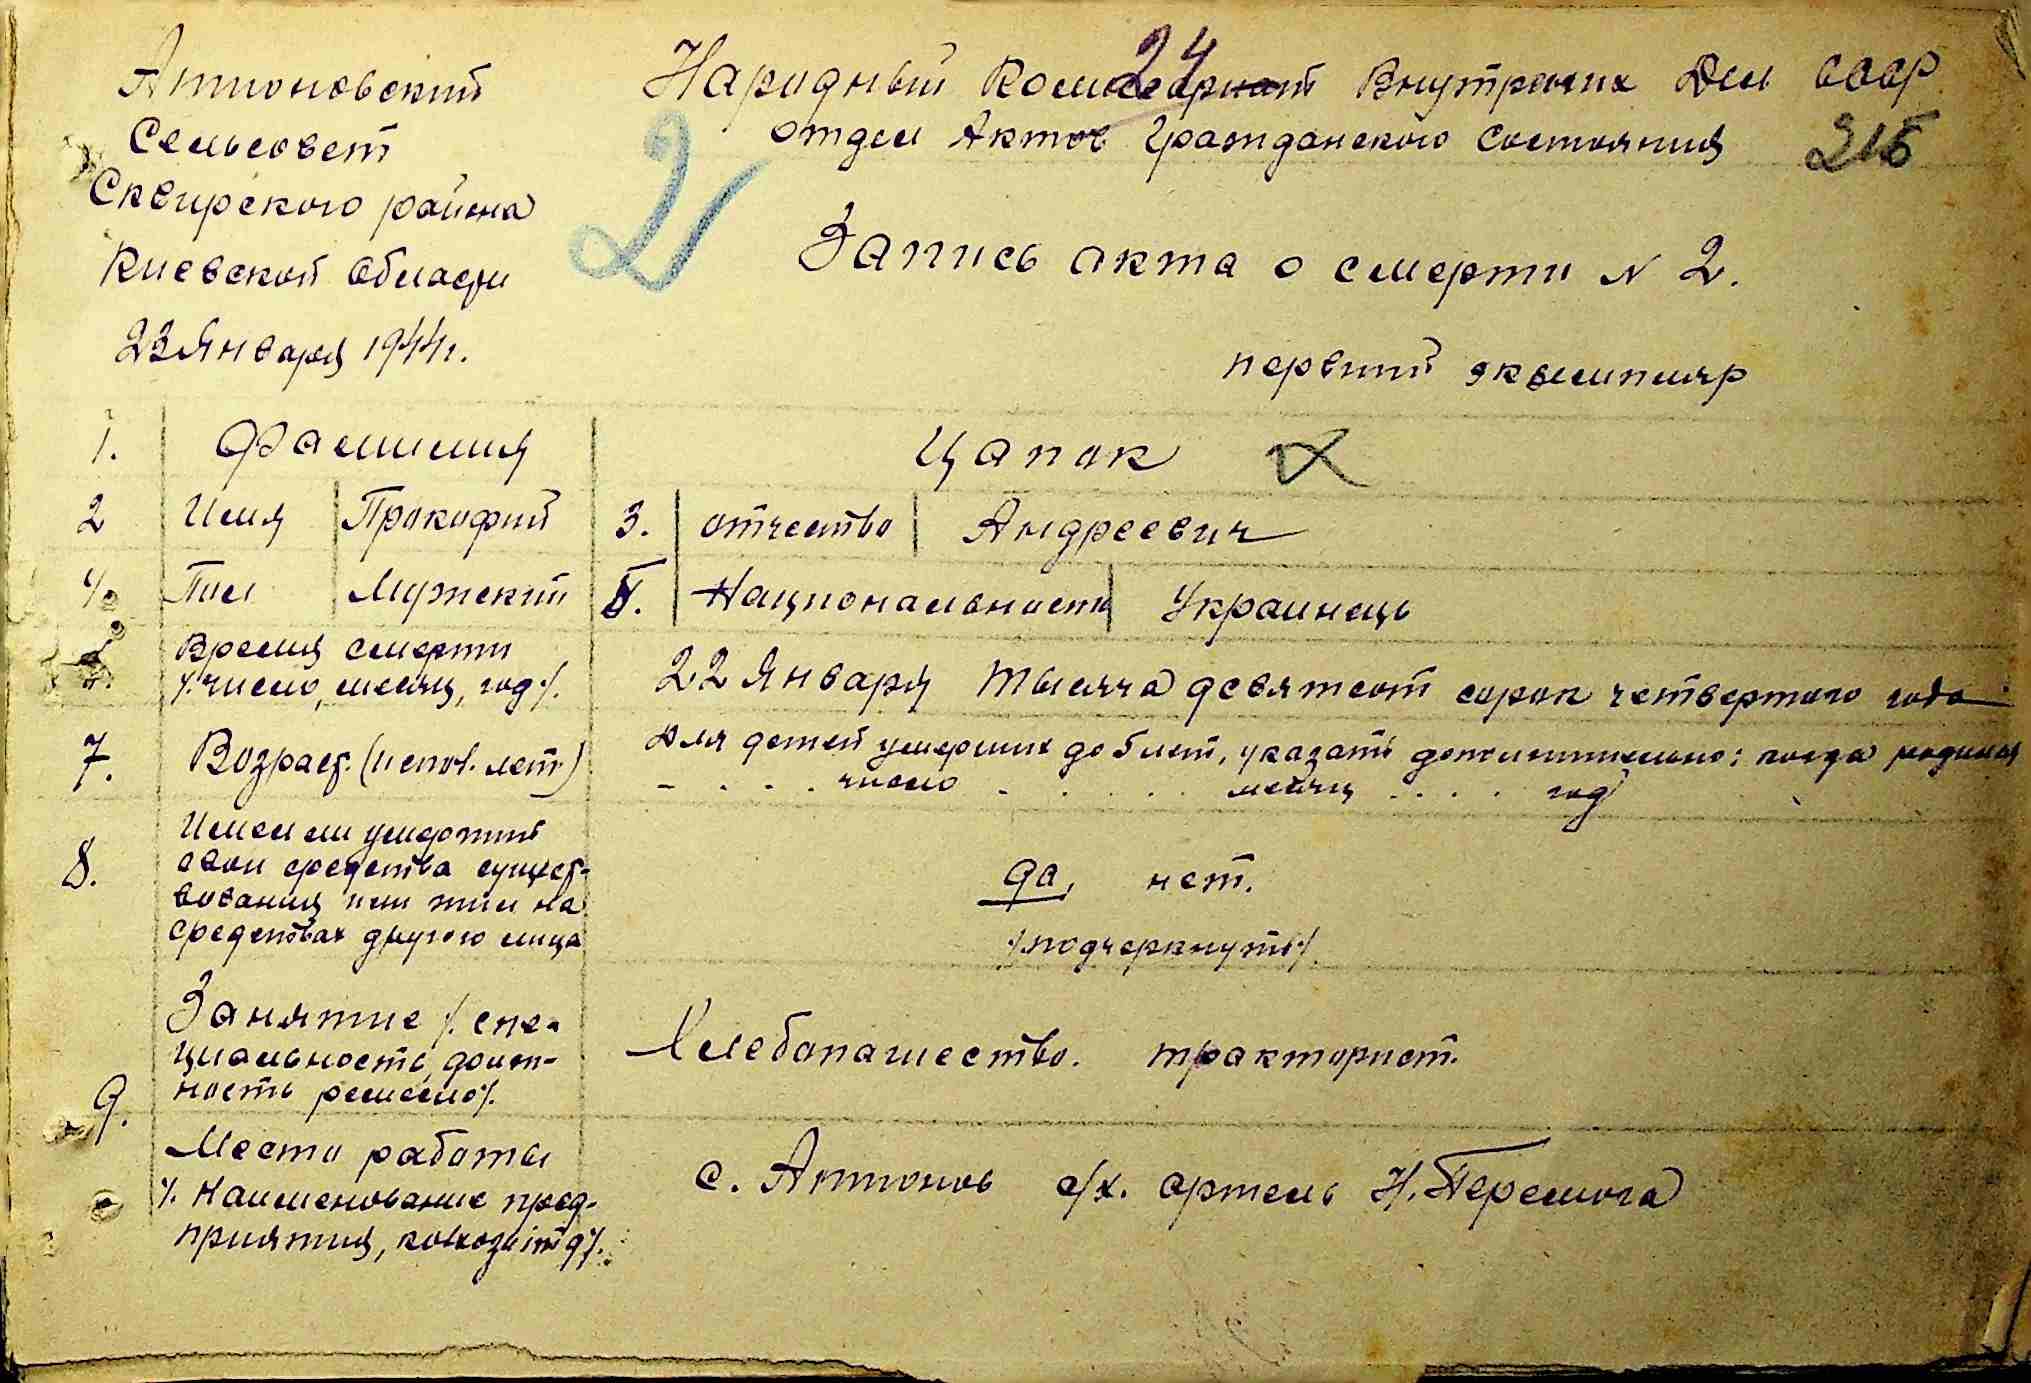 Антоновский
Сельсовет
Сквирского района
Киевской области
23 Января 1944 г.
24
Народный Комиссариат Внутрених Дел СССР
Отдел Актов Гражданского Состояния
215
2
Запись акта о смерти N 2.
первий экземпляр
1. Фамилия Цапок
2 Имя Прокофий 3. отчество Андреевич
4. Пол Мужский 5. Национальность Украинець
Время смерти
/.число, месяц, год/. 22 Января тысяча девятсот сорок четвертого года
7. Возраст. (испол. лет) Для детей умерших до 5 лет, указать дополнительно: когда родился
- . . . . число - . . . . месяц . . . . год
8. Имел ли умерший
свои средства сущест-
вования или жил на
средствах другого лица
да, нет.
/.подчеркнуть/.
9. Занятие /. спе-
циальность, долж-
ность ремесло/.
Хлебопашество. тракторист.
Место работы
/. Наименование пред-
приятия, колхоза и т д/.
с. Антонов с/х. артель Н. Перемога